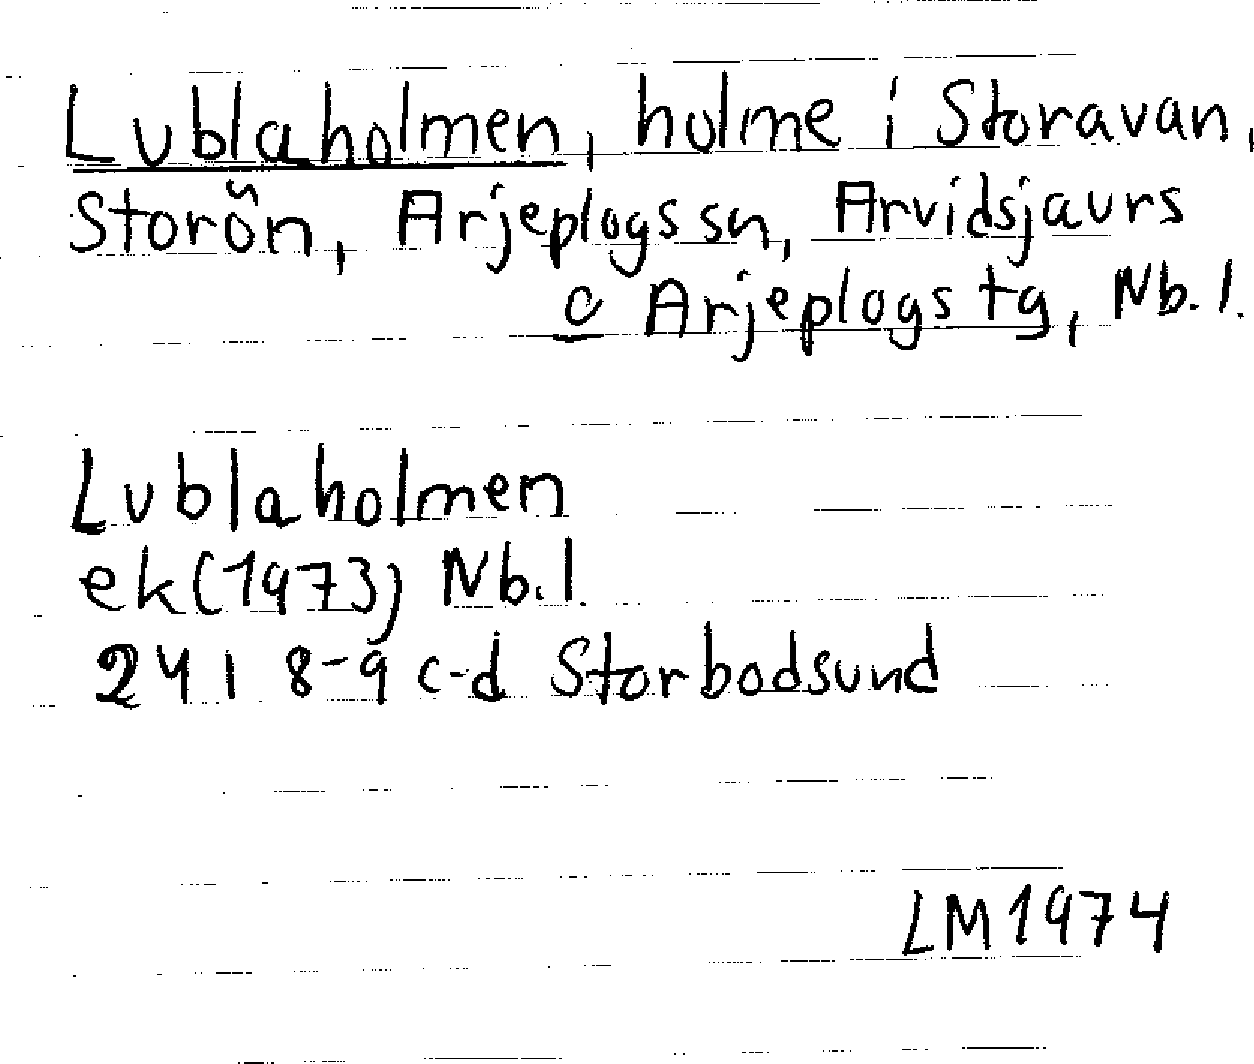 Lublaholmen, holme i Storavan,
Storön, Arjeplogs sn, Arvidsjaurs
o Arjeplogs tg, Nb. l.
Lublaholmen
ek (1973) Nb. l.
24 I 8-9 c-d Storbodsund
LM 1974